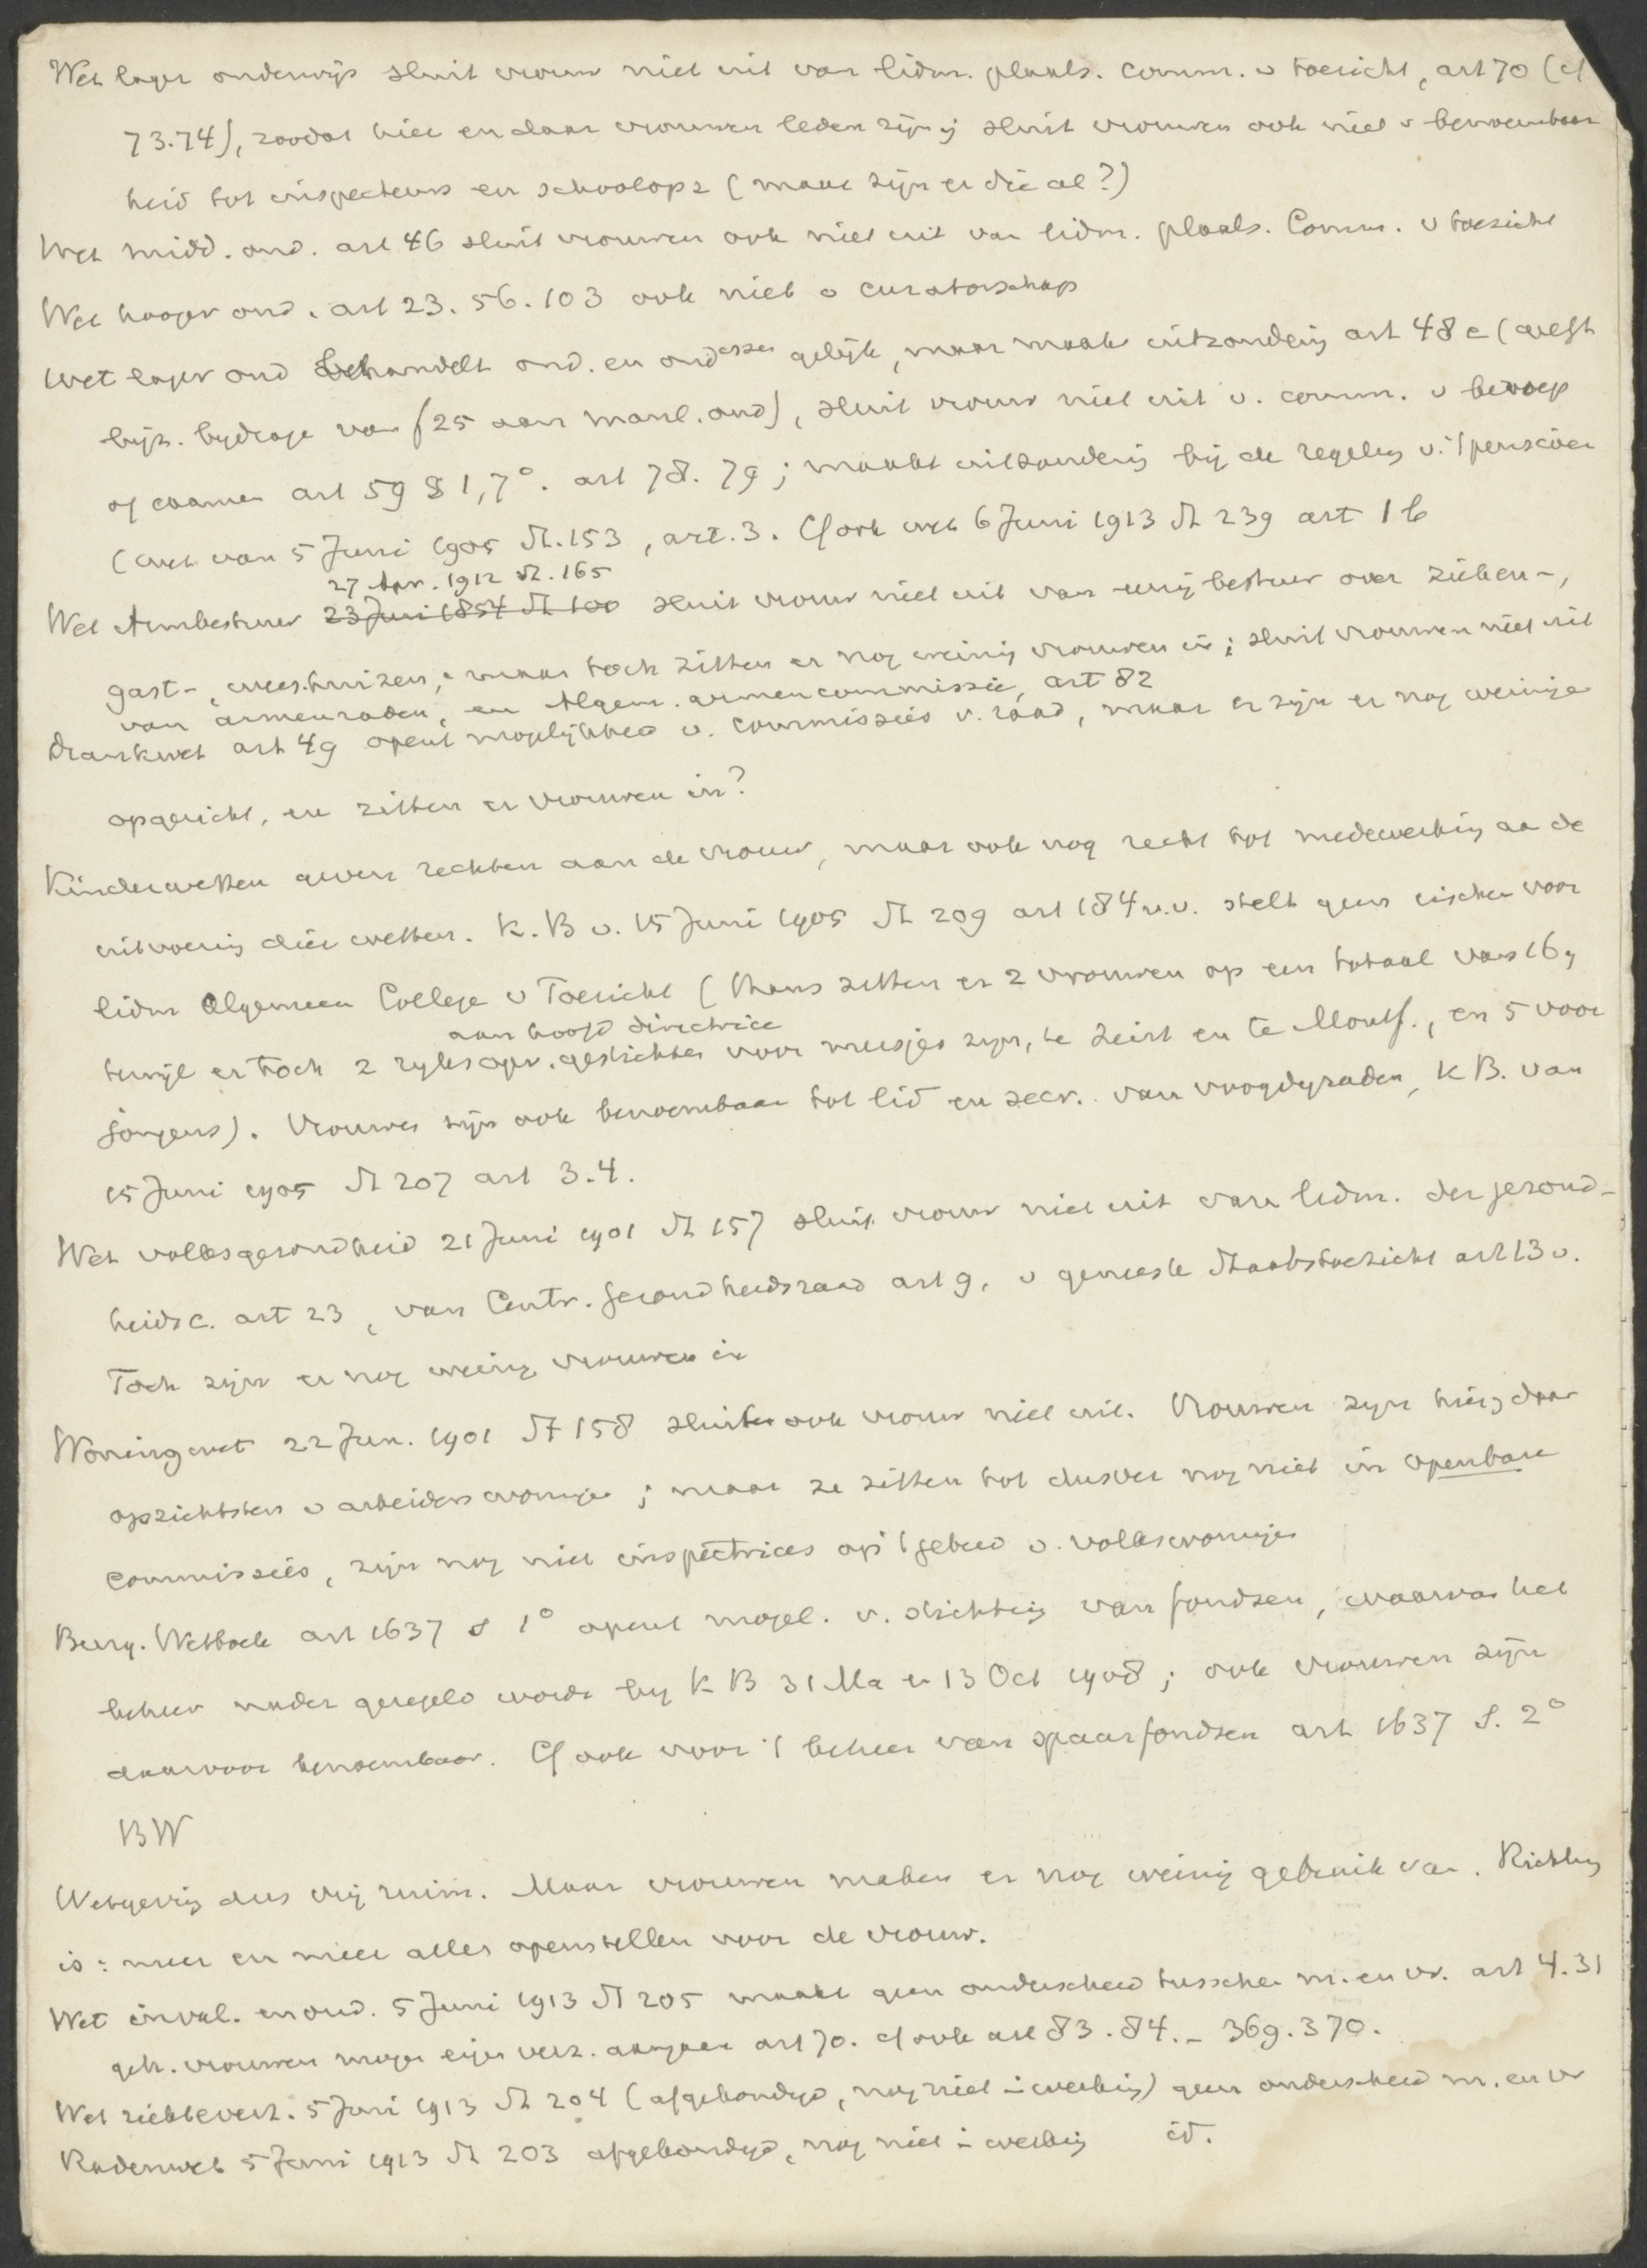 Wet lager onderwijs sluit vrouw niet uit van lidm. plaats. comm. v toezicht, art 70 (cf
73.74), zoodat hier en daar vrouwen leden zijn; sluit vrouwen ook niet v benoembaar
heid tot inspecteurs en schoolopz (maar zijn er die al?)
Wet midd. ond. art 46 sluit vrouwen ook niet uit van lidm. plaats. Comm. v toezicht
Wet hooger ond. art 23. 56. 103 ook niet v curatorschap
Wet lager ond behandelt ond. en ond.essen gelijk, maar maakt uitzondering art 48 e (geeft
bijz. bydrage van f 25 aan manl. ond), sluit vrouw niet uit v. comm. v beroep
of examen art 59 § 1, 7°. art 78. 79; maakt uitzondering bij de regeling v. 't pensioen
(wet van 5 Juni 1905 St. 153, art. 3. Cf ook wet 6 Juni 1913 St 239 art 1 b
27 Apr. 1912 St. 165
Wet Armbestuur 23 Juni 1854 St 100 sluit vrouw niet uit van eenig bestuur over zieken-,
gast-, weeshuizen, maar toch zitten er nog weinig vrouwen in; sluit vrouwen niet uit
van armenraden, en Algem. armencommissie, art 82
Drankwet art 49 opent mogelijkheid v. commissies v. raad, maar er zijn er nog weinige
opgericht, en zitten er vrouwen in?
Kinderwetten geven rechten aan de vrouw, maar ook nog recht tot medewerking aa de
uitvoering dier wetten. K. B v. 15 Juni 1905 St 209 art 184 v.v. stelt geen eischen voor
lidm Algemeen College v Toezicht (thans zitten er 2 vrouwen op een totaal van 16,
aan hoofd directrice
terwijl er toch 2 ryksopv. gestichten voor meisjes zyn, te Zeist en te Montf., en 5 voor
jongens). Vrouwen zijn ook benoembaar tot lid en secr. van voogdyraden, K B. van
15 Juni 1905 St 207 art 3.4.
Wet volksgezondheid 21 Juni 1901 St 157 sluit vrouw niet uit van lidm. der gezond-
heids c. art 23, van Centr. gezondheidsraad art 9, v geneesk Staatstoezicht art 13 v.
Toch zijn er nog weinig vrouwen in
Woningwet 22 Jun. 1901 St 158 sluit ook vrouw niet uit. Vrouwen zyn hier, daar
opzichtsters v arbeiderswoningen; maar ze zitten tot dusver nog niet in openbare
commissies, zijn nog niet inspectrices op 't gebied v. volkswoningen
Burg. Wetboek art 1637 s 1° opent mogel. v. stichting van fondsen, waarvan het
beheer nader geregeld wordt by K B 31 Ma en 13 Oct 1908; ook vrouwen zijn
daarvoor benoembaar. Cf ook voor 't beheer van spaarfondsen art 1637 s. 2°
BW
Wetgeving dus vrij ruim. Maar vrouwen maken er nog weinig gebruik van. Richting
is: meer en meer alles openstellen voor de vrouw.
Wet inval. en oud. 5 Juni 1913 St 205 maakt geen onderscheid tusschen m. en vr. art 4. 31
geh. vrouwen mogen eigen verz. aangaan art 70. cf ook art 83. 84. - 369. 370.
Wet ziekteverz. 5 Juni 1913 St 204 (afgekondigd, nog niet in werking) geen onderscheid m. en vr
Radenwet 5 Juni 1913 St 203 afgekondigd, nog niet in werking id.